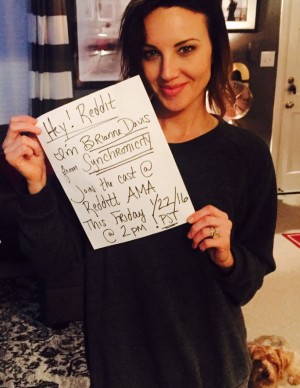 Hey! Reddit
I'm Brianne Davis
from Synchronicity
Join the cast @
Reddit AMA
This Friday 1/22/16
@ 2pm PST